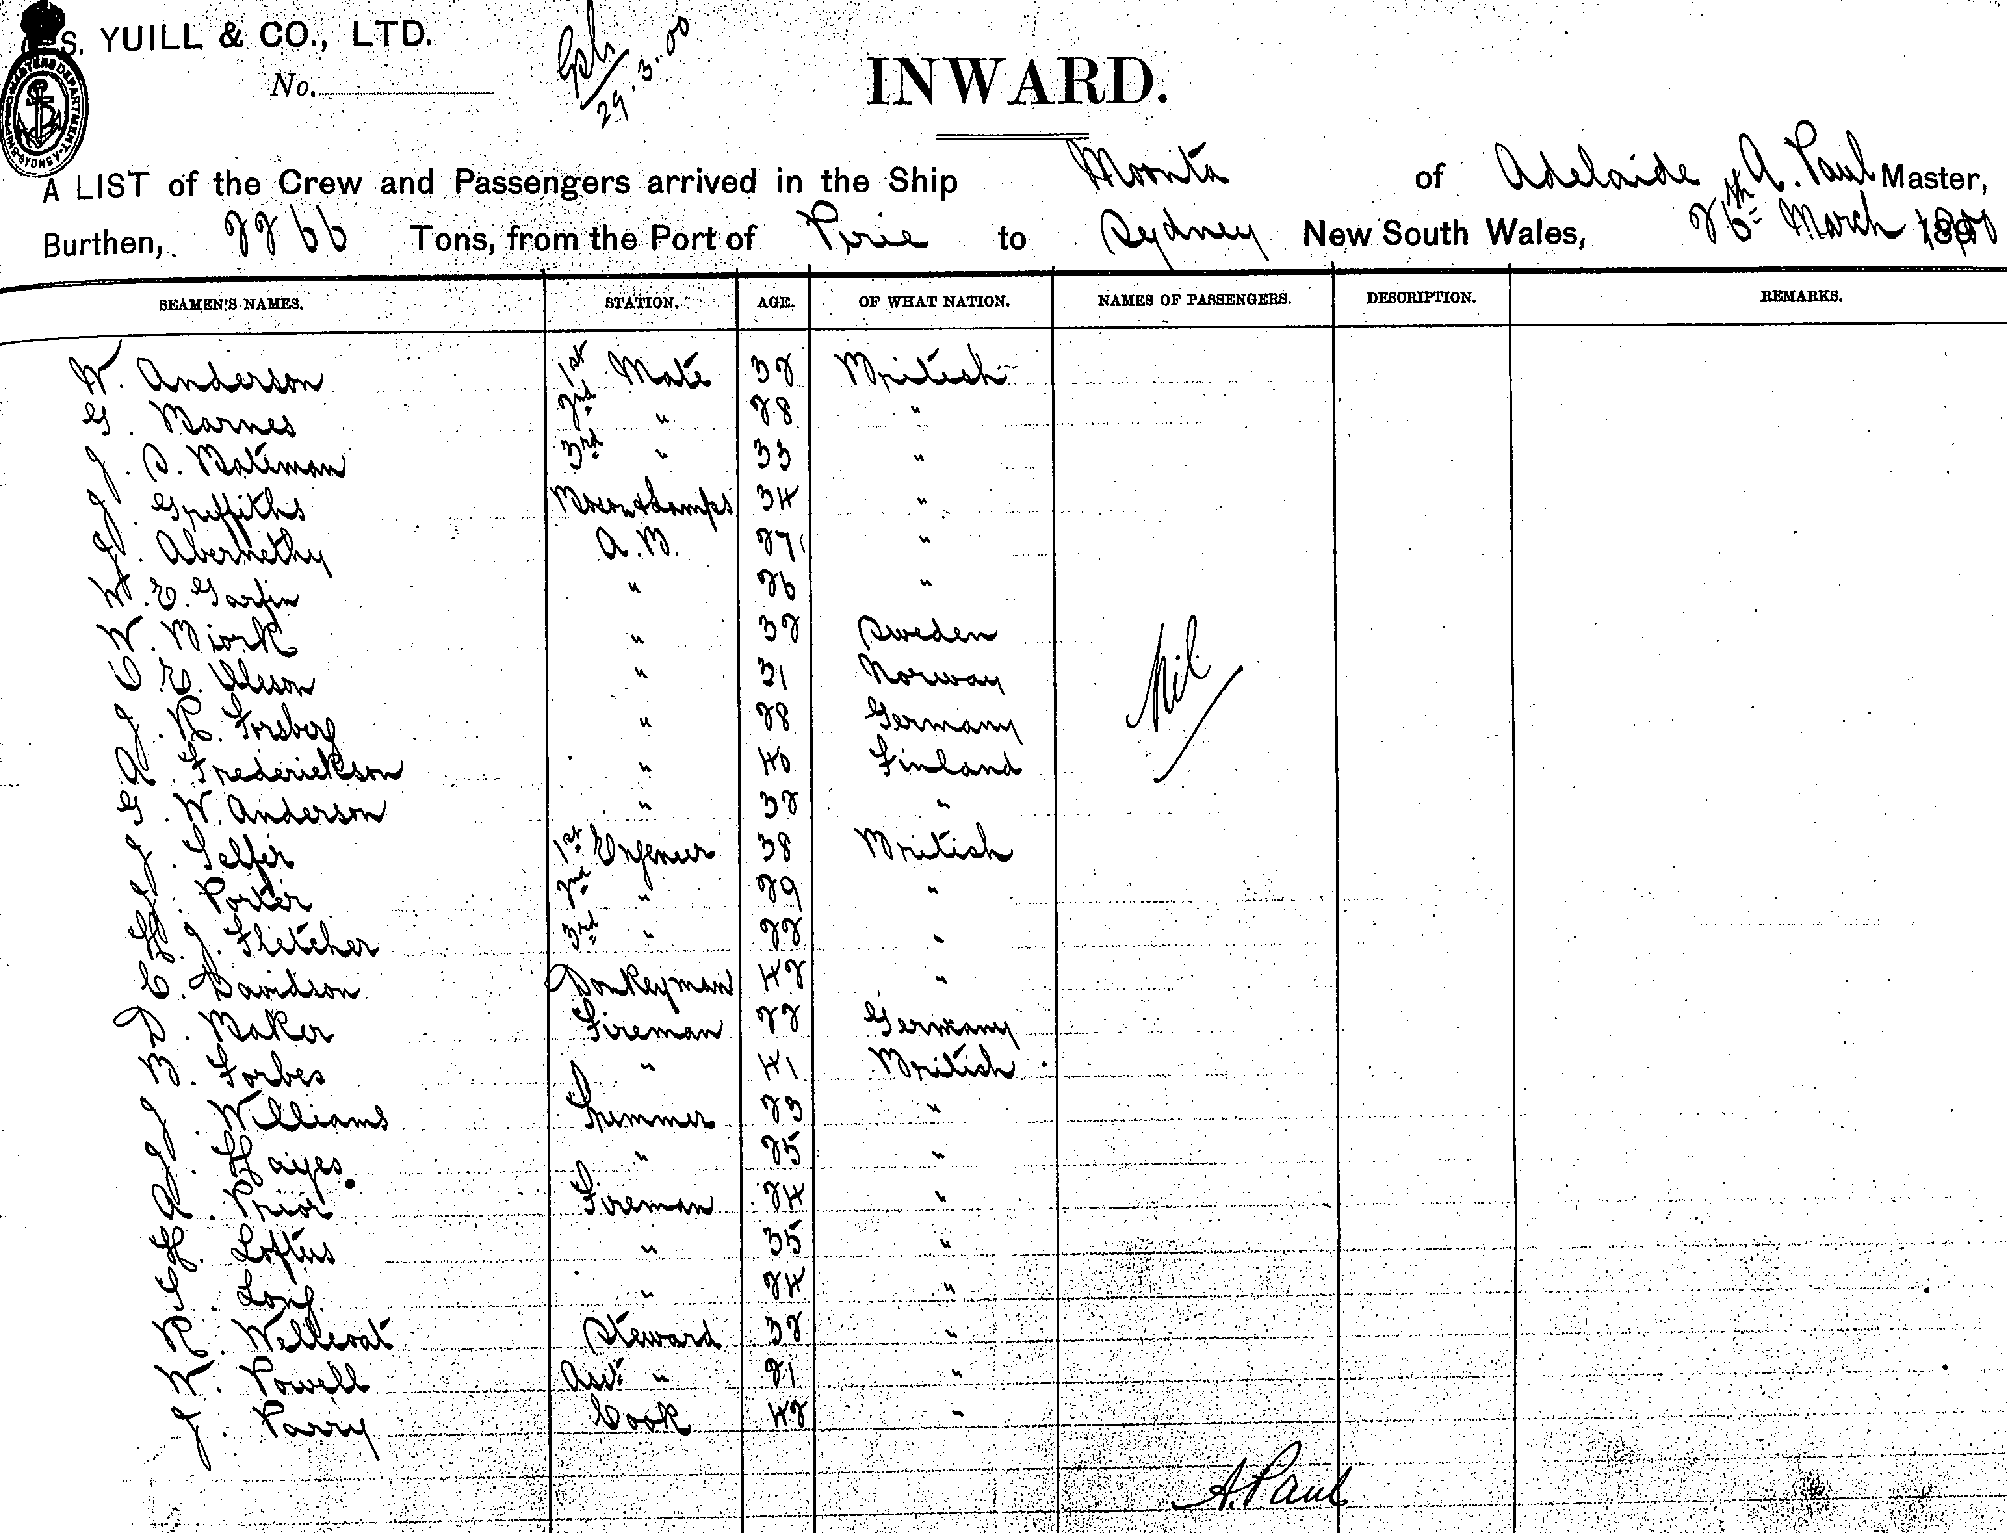 S. YUILL & CO., LTD.
No.
29.3.00
INWARD.
A LIST of the Crew and Passengers arrived in the Ship Moonta of Adelaide A. Paul Master,
Burthen, 2266 Tons, from the Port of Pirie to Sydney New South Wales, 26th March 1900
SEAMEN'S NAMES. STATION. AGE. OF WHAT NATION. NAMES OF PASSENGERS. DESCRIPTION. REMARKS.
W. Anderson 1st Mate 32 British
G. Barnes 2nd " 28 "
J. S. Bateman 3rd " 33 "
J. Griffiths Bosn & Lamps 34 "
J. Abernethy A.B. 27 "
W. E. Garfin " 26 "
W. Biork " 32 Sweden
C. E. Olsson " 31 Norway
J. R. Forsberg " 28 Germany
A. Frederickson " 40 Finland
G. W. Anderson " 32 "
Nil
J. Telfer 1st Engeneer 38 British
J. Porter 2nd " 29 "
H. J. Fletcher 3rd " 22 "
C. Davidson Donkeyman 42 "
D. Baker Fireman 22 Germany
B. Forbes " 41 British
J. Williams Trimmer 23 "
J. Hayes " 25 "
A. Prior Fireman 24 "
H. Loftus " 35 "
G. Long " 24 "
R. Wellcoat Steward 32 "
W. Powell Asst " 21 "
J. Parry Cook 42 "
A. Paul